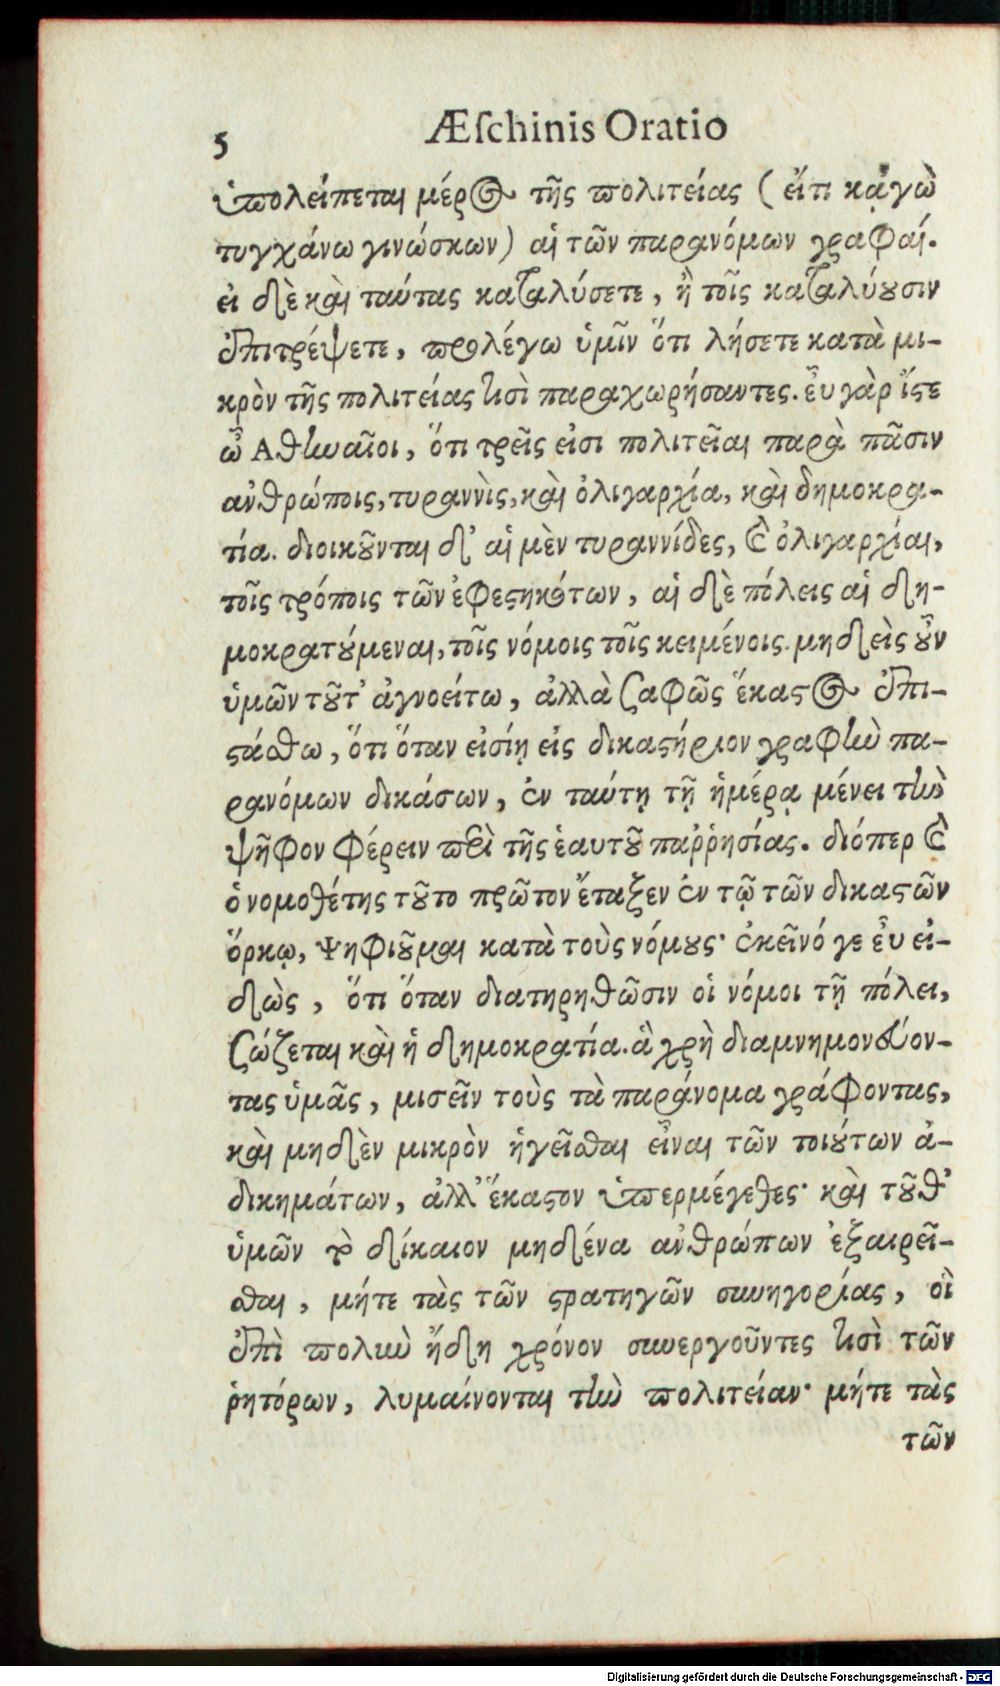 5 Æſchinis Oratio
ὑπολείπεται μέρος τῆς πολιτείας (εἴτι κᾀγὼ
τυγχάνω γινώσκων) αἱ τῶν παρανόμων γραφαί.
εἰ δὲ καὶ ταύτας καταλύσετε, ἢ τοῖς καταλύουσιν
ἐπιτρέψετε, προλέγω ὑμῖν ὅτι λήσετε κατὰ μι-
κρὸν τῆς πολιτείας τισὶ παραχωρήσαντες. εὖ γὰρ ἴστε
ὦ Ἀθηναῖοι, ὅτι τρεῖς εἰσι πολιτεῖαι παρὰ πᾶσιν
ἀνθρώποις, τυραννὶς, καὶ ὀλιγαρχία, καὶ δημοκρα-
τία. διοικοῦνται δ' αἱ μὲν τυραννίδες, καὶ ὀλιγαρχίαι,
τοῖς τρόποις τῶν ἐφεστηκότων, αἱ δὲ πόλεις αἱ δη-
μοκρατούμεναι, τοῖς νόμοις τοῖς κειμένοις. μηδεὶς οὖν
ὑμῶν τοῦτ' ἀγνοείτω, ἀλλὰ σαφῶς ἕκαστος ἐπι-
στάσθω, ὅτι ὅταν εἰσίῃ εἰς δικαστήριον γραφὴν πα-
ρανόμων δικάσων, ἐν ταύτῃ τῇ ἡμέρᾳ μένει τὴν
ψῆφον φέρειν περὶ τῆς ἑαυτοῦ παῤῥησίας. διόπερ καὶ
ὁ νομοθέτης τοῦτο πρῶτον ἔταξεν ἐν τῷ τῶν δικαστῶν
ὅρκῳ, Ψηφιοῦμαι κατὰ τοὺς νόμους· ἐκεῖνό γε εὖ εἰ-
δὼς, ὅτι ὅταν διατηρηθῶσιν οἱ νόμοι τῇ πόλει,
σώζεται καὶ ἡ δημοκρατία. ἃ χρὴ διαμνημονεύον-
τας ὑμᾶς, μισεῖν τοὺς τὰ παράνομα γράφοντας,
καὶ μηδὲν μικρὸν ἡγεῖσθαι εἶναι τῶν τοιούτων ἀ-
δικημάτων, ἀλλ' ἕκαστον ὑπερμέγεθες· καὶ τοῦθ'
ὑμῶν τὸ δίκαιον μηδένα ἀνθρώπων ἐξαιρεῖ-
σθαι, μήτε τὰς τῶν στρατηγῶν συνηγορίας, οἳ
ἐπὶ πολὺν ἤδη χρόνον συνεργοῦντες τισὶ τῶν
ῥητόρων, λυμαίνονται τὴν πολιτείαν· μήτε τὰς
τῶν
Digitalisierung gefördert durch die Deutsche Forschungsgemeinschaft - DFG